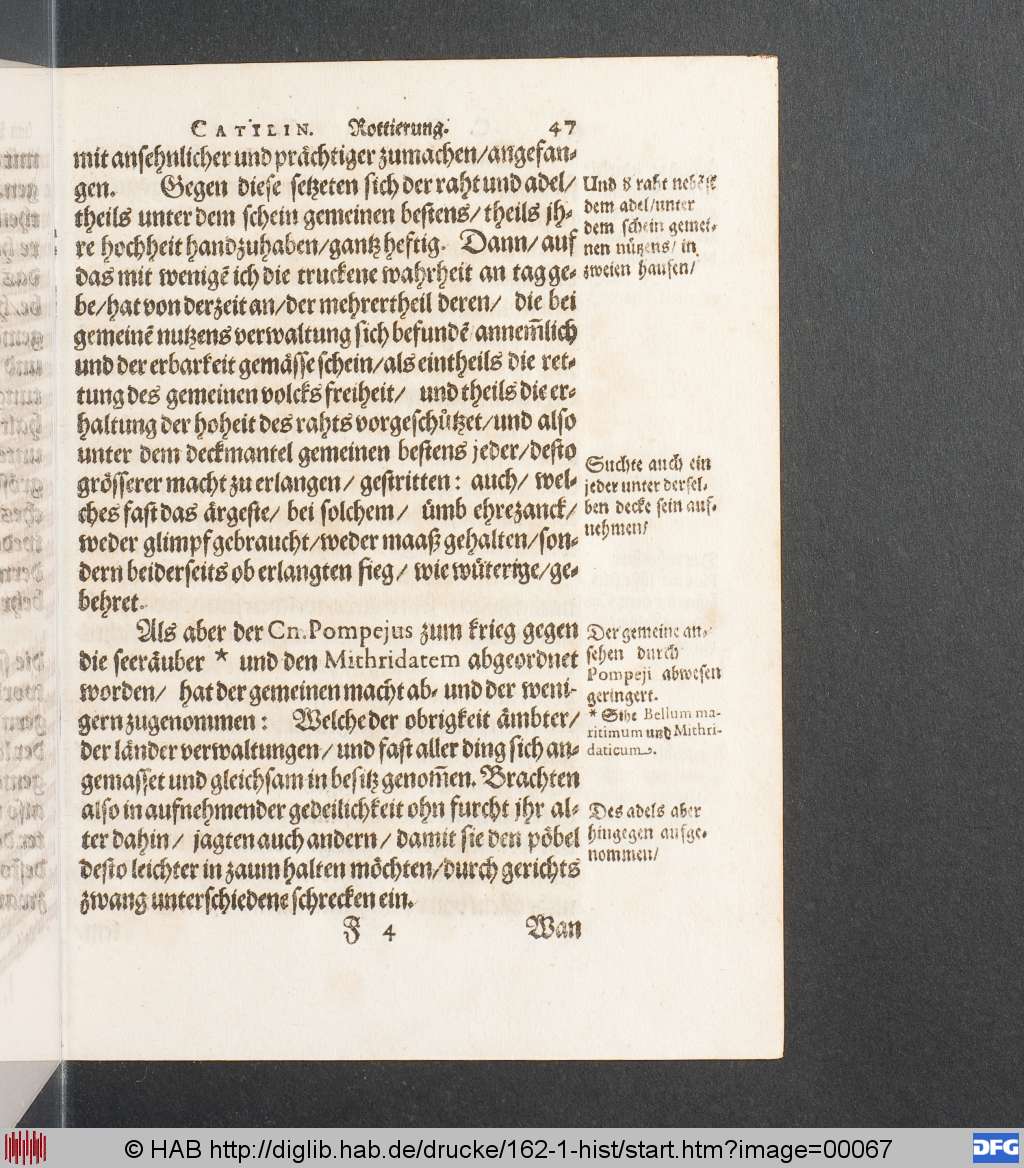 CATILIN. Rottierung. 47
mit ansehnlicher und prächtiger zumachen/angefan-
gen. Gegen diese setzeten sich der raht und adel/
theils unter dem schein gemeinen bestens/theils jh-
re hochheit handzuhaben/gantz heftig. Dann/auf
das mit wenigē ich die truckene wahrheit an tag ge-
be/hat von der zeit an/der mehrertheil deren/ die bei
gemeinē nutzens verwaltung sich befundē annem̄lich
und der erbarkeit gemässe schein/als eintheils die ret-
tung des gemeinen volcks freiheit/ und theils die er-
haltung der hoheit des rahts vorgeschützet/und also
unter dem deckmantel gemeinen bestens jeder/desto
grösserer macht zu erlangen/ gestritten: auch/ wel-
ches fast das ärgeste/ bei solchem/ ümb ehrezanck/
weder glimpf gebraucht/weder maaß gehalten/son-
dern beiderseits ob erlangten sieg/ wie wüterige/ge-
behret.
Als aber der Cn. Pompejus zum krieg gegen
die seeräuber * und den Mithridatem abgeordnet
worden/ hat der gemeinen macht ab- und der weni-
gern zugenommen: Welche der obrigkeit ämbter/
der länder verwaltungen/ und fast aller ding sich an-
gemasset und gleichsam in besitz genom̄en. Brachten
also in aufnehmender gedeilichkeit ohn furcht jhr al-
ter dahin/ jagten auch andern/ damit sie den pöbel
desto leichter in zaum halten möchten/durch gerichts
zwang unterschiedene schrecken ein.
F 4 Wan
Und ð raht nebēst
dem adel/unter
dem schein gemei-
nen nützens/ in
zweien haufen/
Suchte auch ein
jeder unter dersel-
ben decke sein auf-
nehmen/
Der gemeine an-
sehen durch
Pompeji abwesen
geringert.
* Sihe Bellum ma-
ritimum und Mithri-
daticum.
Des adels aber
hingegen aufge-
nommen/
© HAB http://diglib.hab.de/drucke/162-1-hist/start.htm?image=00067
DFG